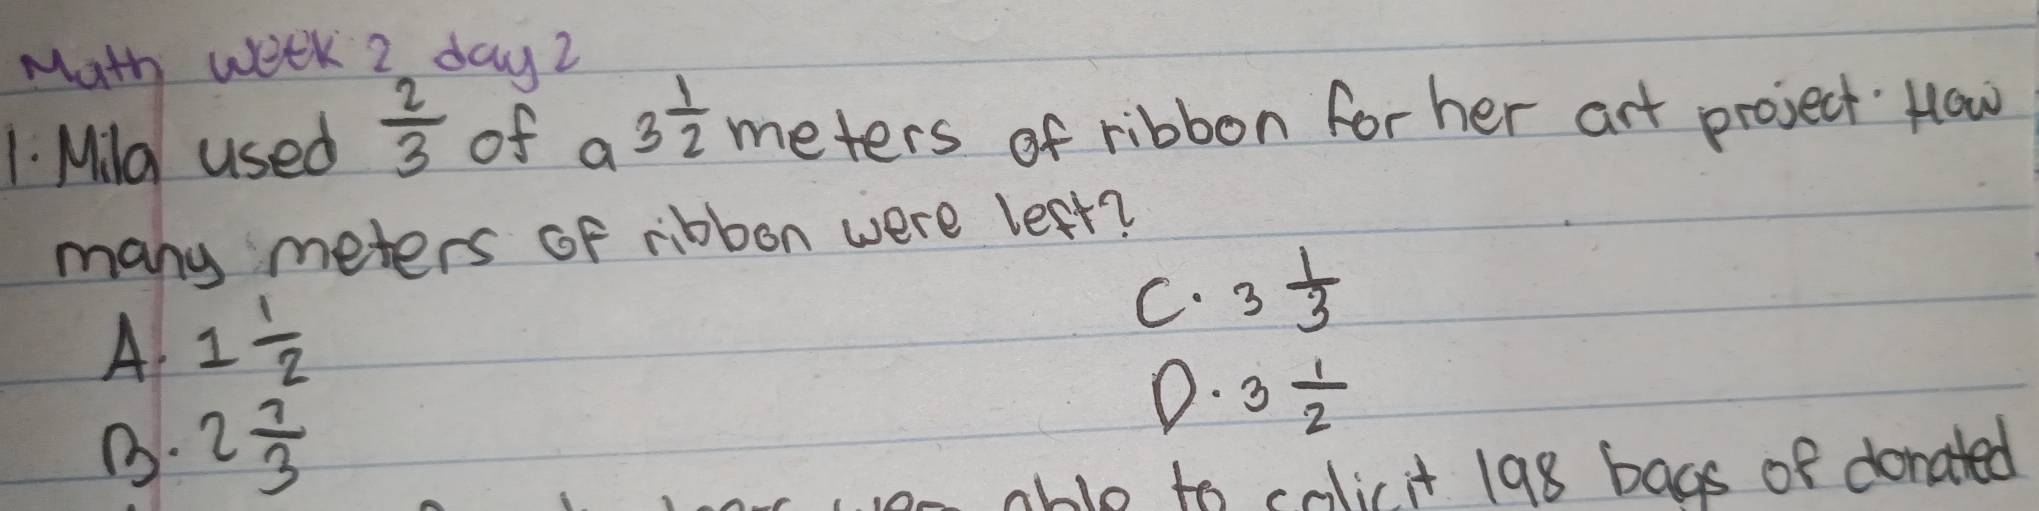 Math week 2 day 2
1. Mila used 2/3 of a 3 1/2 meters of ribbon for her art project. How
many meters of ribbon were left?
A. 1 1/2
B. 2 2/3
C. 3 1/3
D. 3 1/2
able to solicit 198 bags of donated